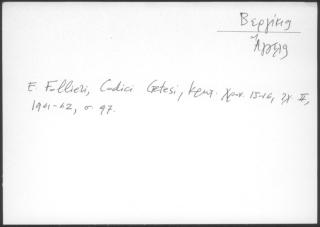 Βεργίκης
Ἄγγελος
E. Follieri, Codici Cretesi, Κρητ. Χρον. 15-16, τχ. II,
1961-62, σ. 97.